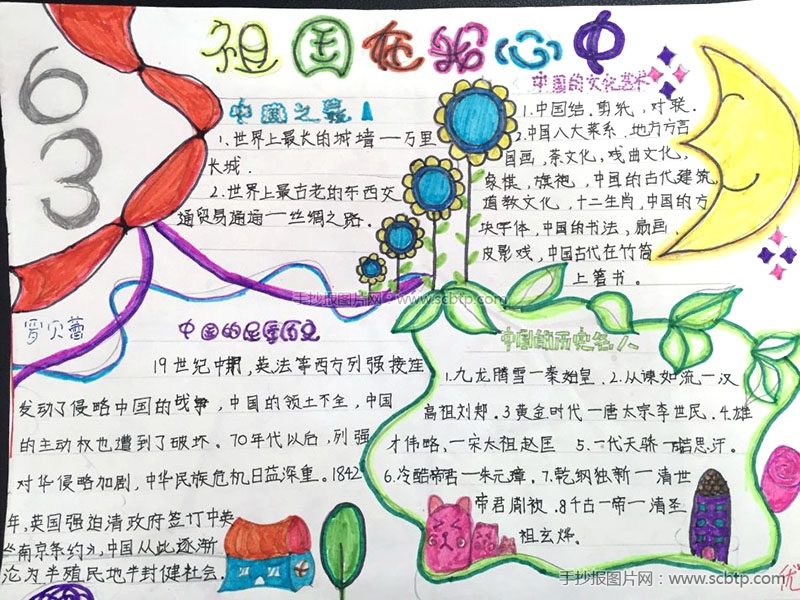 祖国在我心中
63
中国之最
1.世界上最长的城墙一万里
长城.
2.世界上最古老的东西交
通贸易通道一丝绸之路.
中国的文化艺术
1.中国结.剪纸,对联.
2.中国八大菜系.地方方言
国画,茶文化,戏曲文化,
象棋,旗袍,中国的古代建筑,
道教文化,十二生肖,中国的方
块字体,中国的书法,扇画,
皮影戏,中国古代在竹筒
上著书。
手抄报图片网:www.scbtp.com
罗贝蕾
中国的屈辱历史
19世纪中期,英法等西方列强接连
发动了侵略中国的战争,中国的领土不全,中国
的主动权也遭到了破坏.70年代以后,列强
对华侵略加剧,中华民族危机日益深重。1842
年,英国强迫清政府签订中英
《南京条约》,中国从此逐渐
沦为半殖民地半封健社会.
中国的历史名人
1.九龙腾雪一秦始皇.2.从谏如流一汉
高祖刘邦.3黄金时代一唐太宗李世民.4.雄
才伟略,一宋太祖赵匡 5.一代天骄一
6.冷酷帝君一朱元璋.7.乾纲独断一清世
帝君周 8千古一帝一清圣
祖玄烨.
手抄报图片网:www.scbtp.com
优